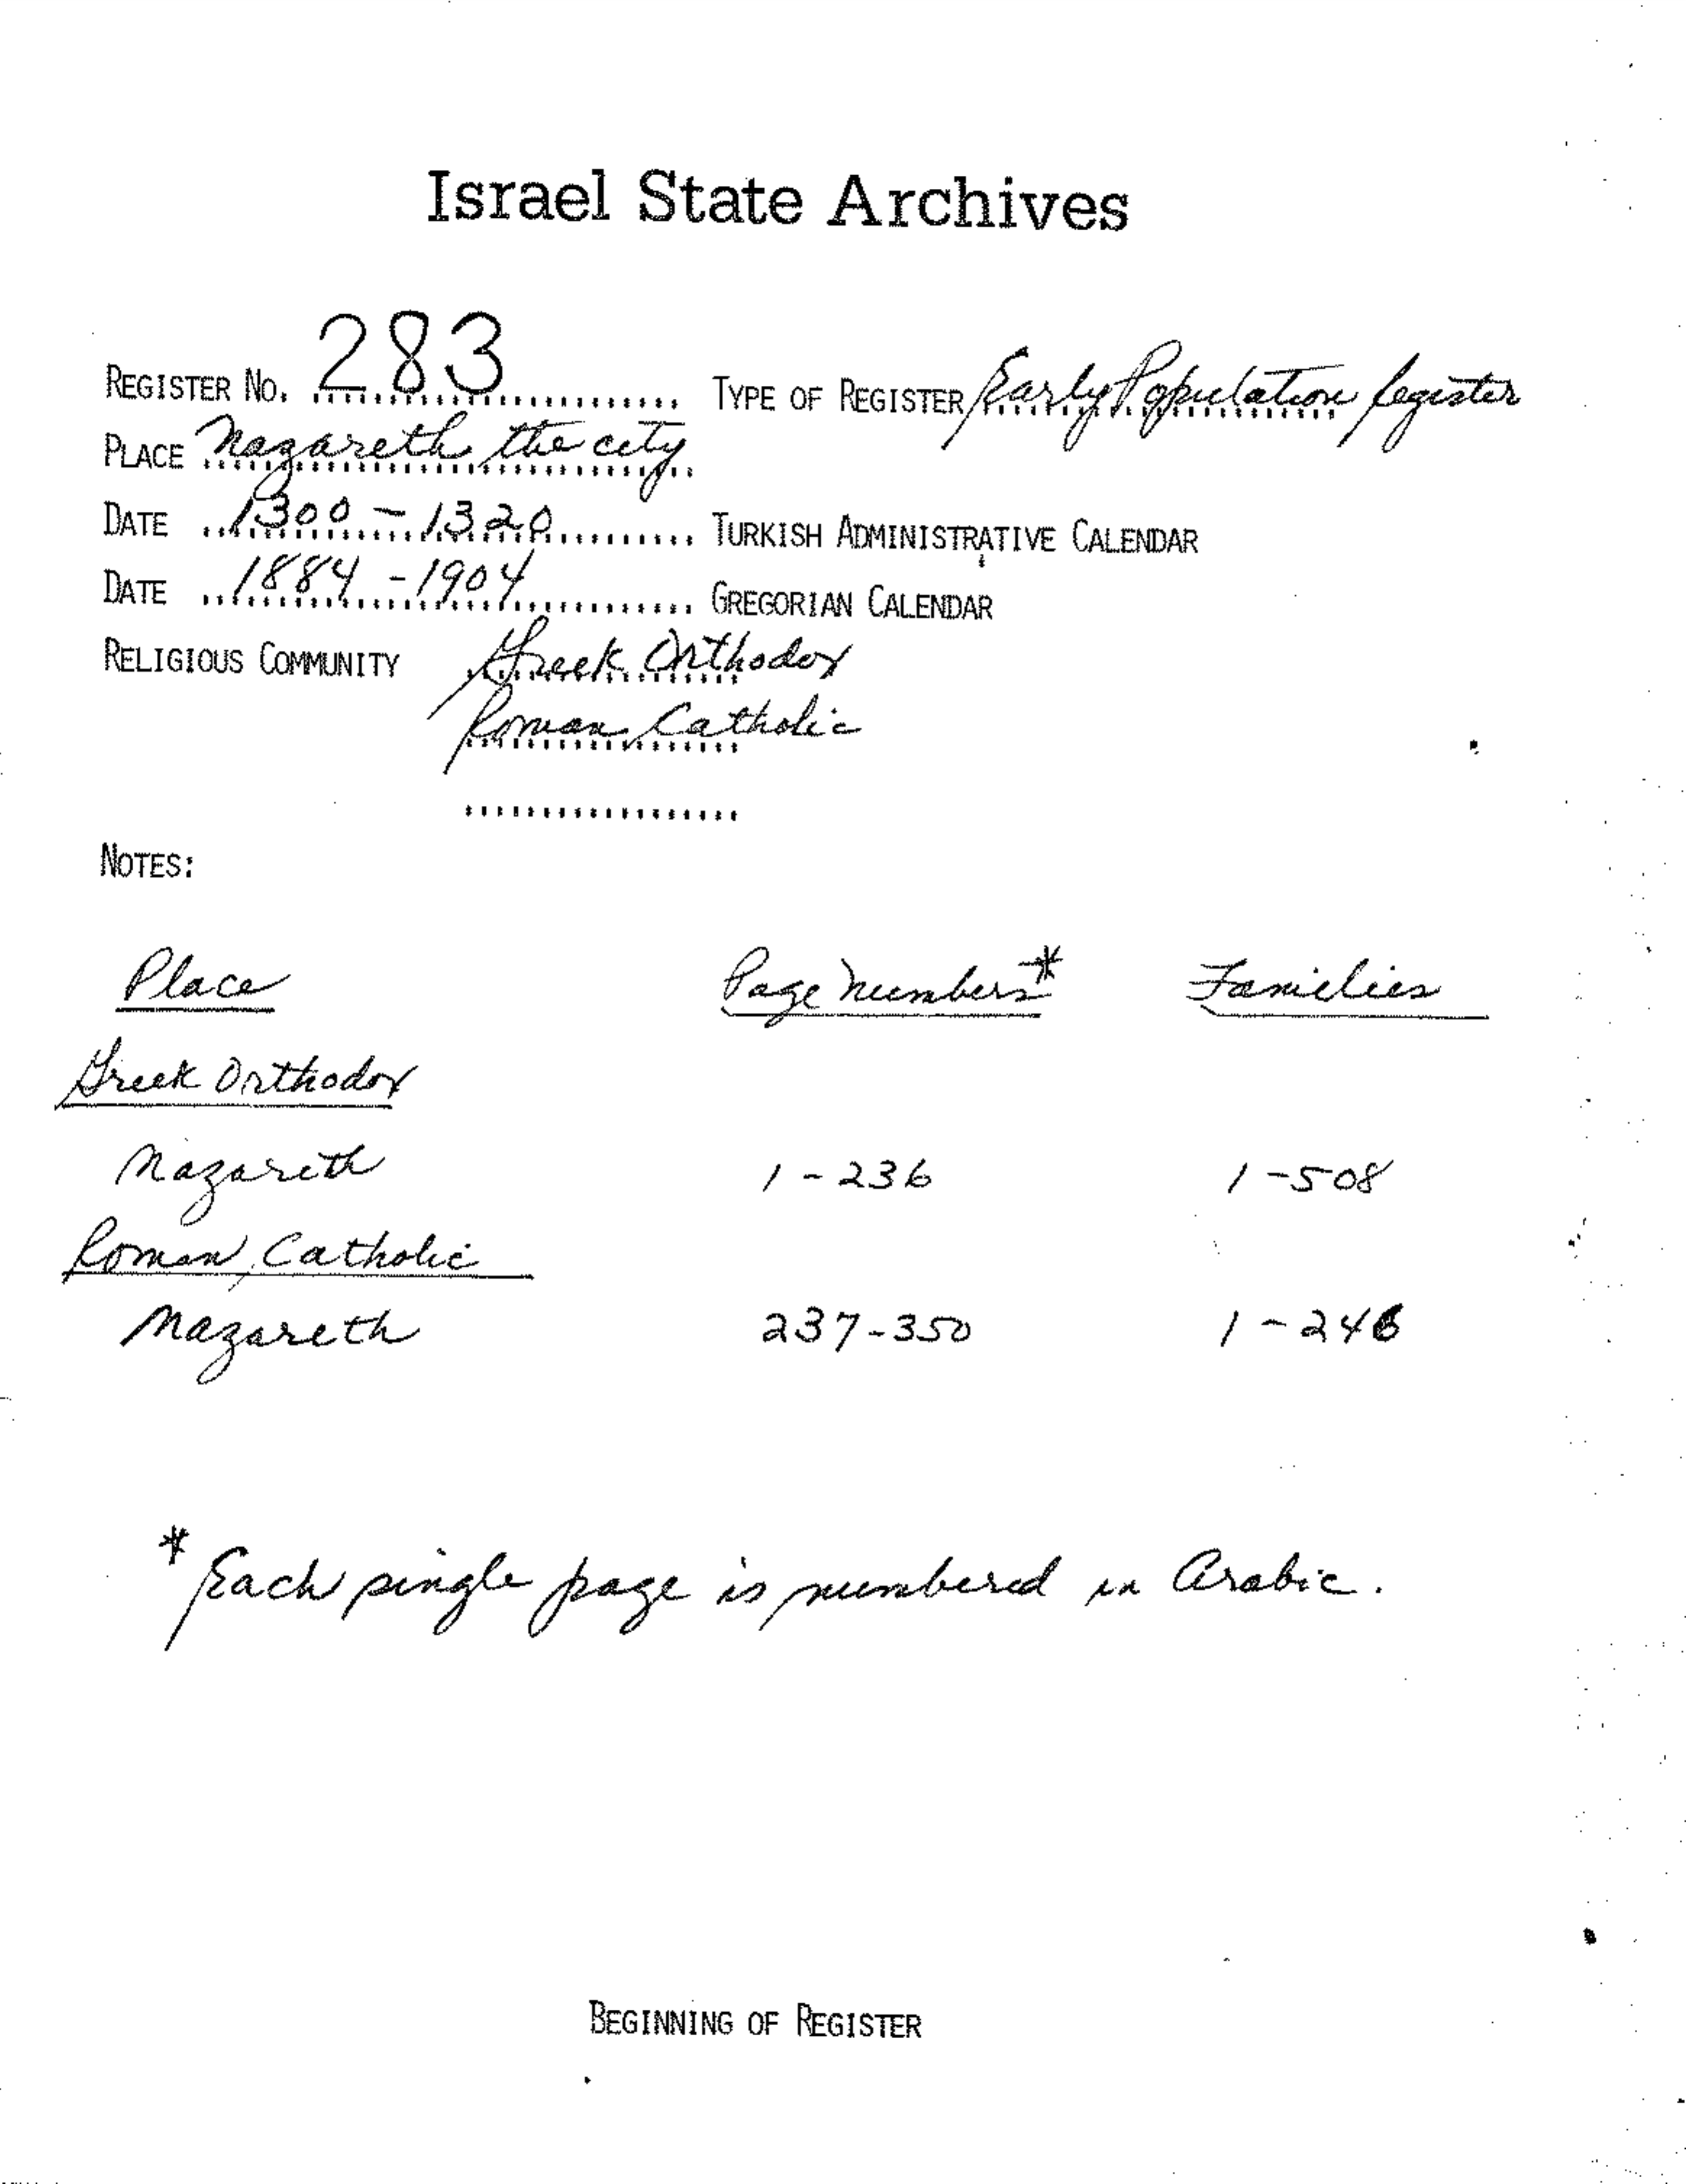 Israel State Archives
REGISTER NO. 283 TYPE OF REGISTER Early Population Register
PLACE Nazareth the city
DATE 1300 - 1320 TURKISH ADMINISTRATIVE CALENDAR
DATE 1884 - 1904 GREGORIAN CALENDAR
RELIGIOUS COMMUNITY Greek Orthodox
Roman Catholic
NOTES:
Place Page Numbers* Families
Greek Orthodox
Nazareth 1 - 236 1 - 508
Roman Catholic
Nazareth 237 - 350 1 - 246
* Each single page is numbered in Arabic.
BEGINNING OF REGISTER